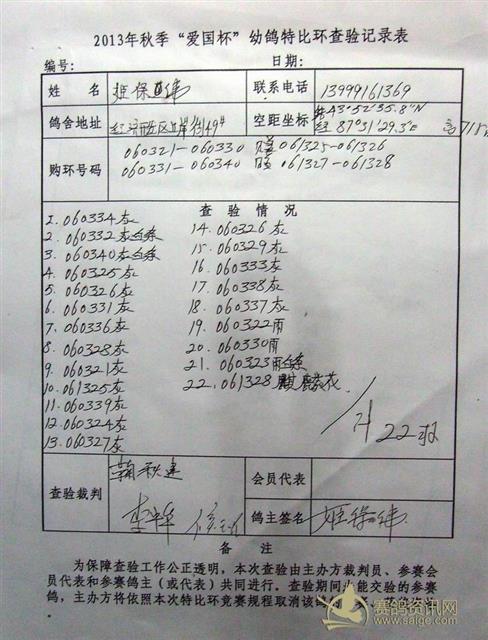 2013年秋季“爱国杯”幼鸽特比环查验记录表
编号： 日期：
姓名 姬保卫纬 联系电话 13999161369
鸽舍地址 空距坐标 43°52′35.8″N
经 87°31′29.3″E 高711
购环号码 060321—060330 赠 061325—061326
060331—060340 赠 061327—061328
查验情况
1. 060334灰
2. 060332灰白条
3. 060340灰白条
4. 060325灰
5. 060326灰
6. 060331灰
7. 060336灰
8. 060328灰
9. 060321灰
10. 061325灰
11. 060339灰
12. 060324灰
13. 060327灰
14. 060326灰
15. 060329灰
16. 060333灰
17. 060338灰
18. 060337灰
19. 060322雨
20. 060330雨
21. 060323雨白条
22. 061328麒麟花
22羽
查验裁判 会员代表
鸽主签名
备注
为保障查验工作公正透明，本次查验由主办方裁判员、参赛会
员代表和参赛鸽主（或代表）共同进行。查验期间未能交验的参赛
鸽，主办方将依照本次特比环竞赛规程取消该
赛鸽资讯网
www.saige.com